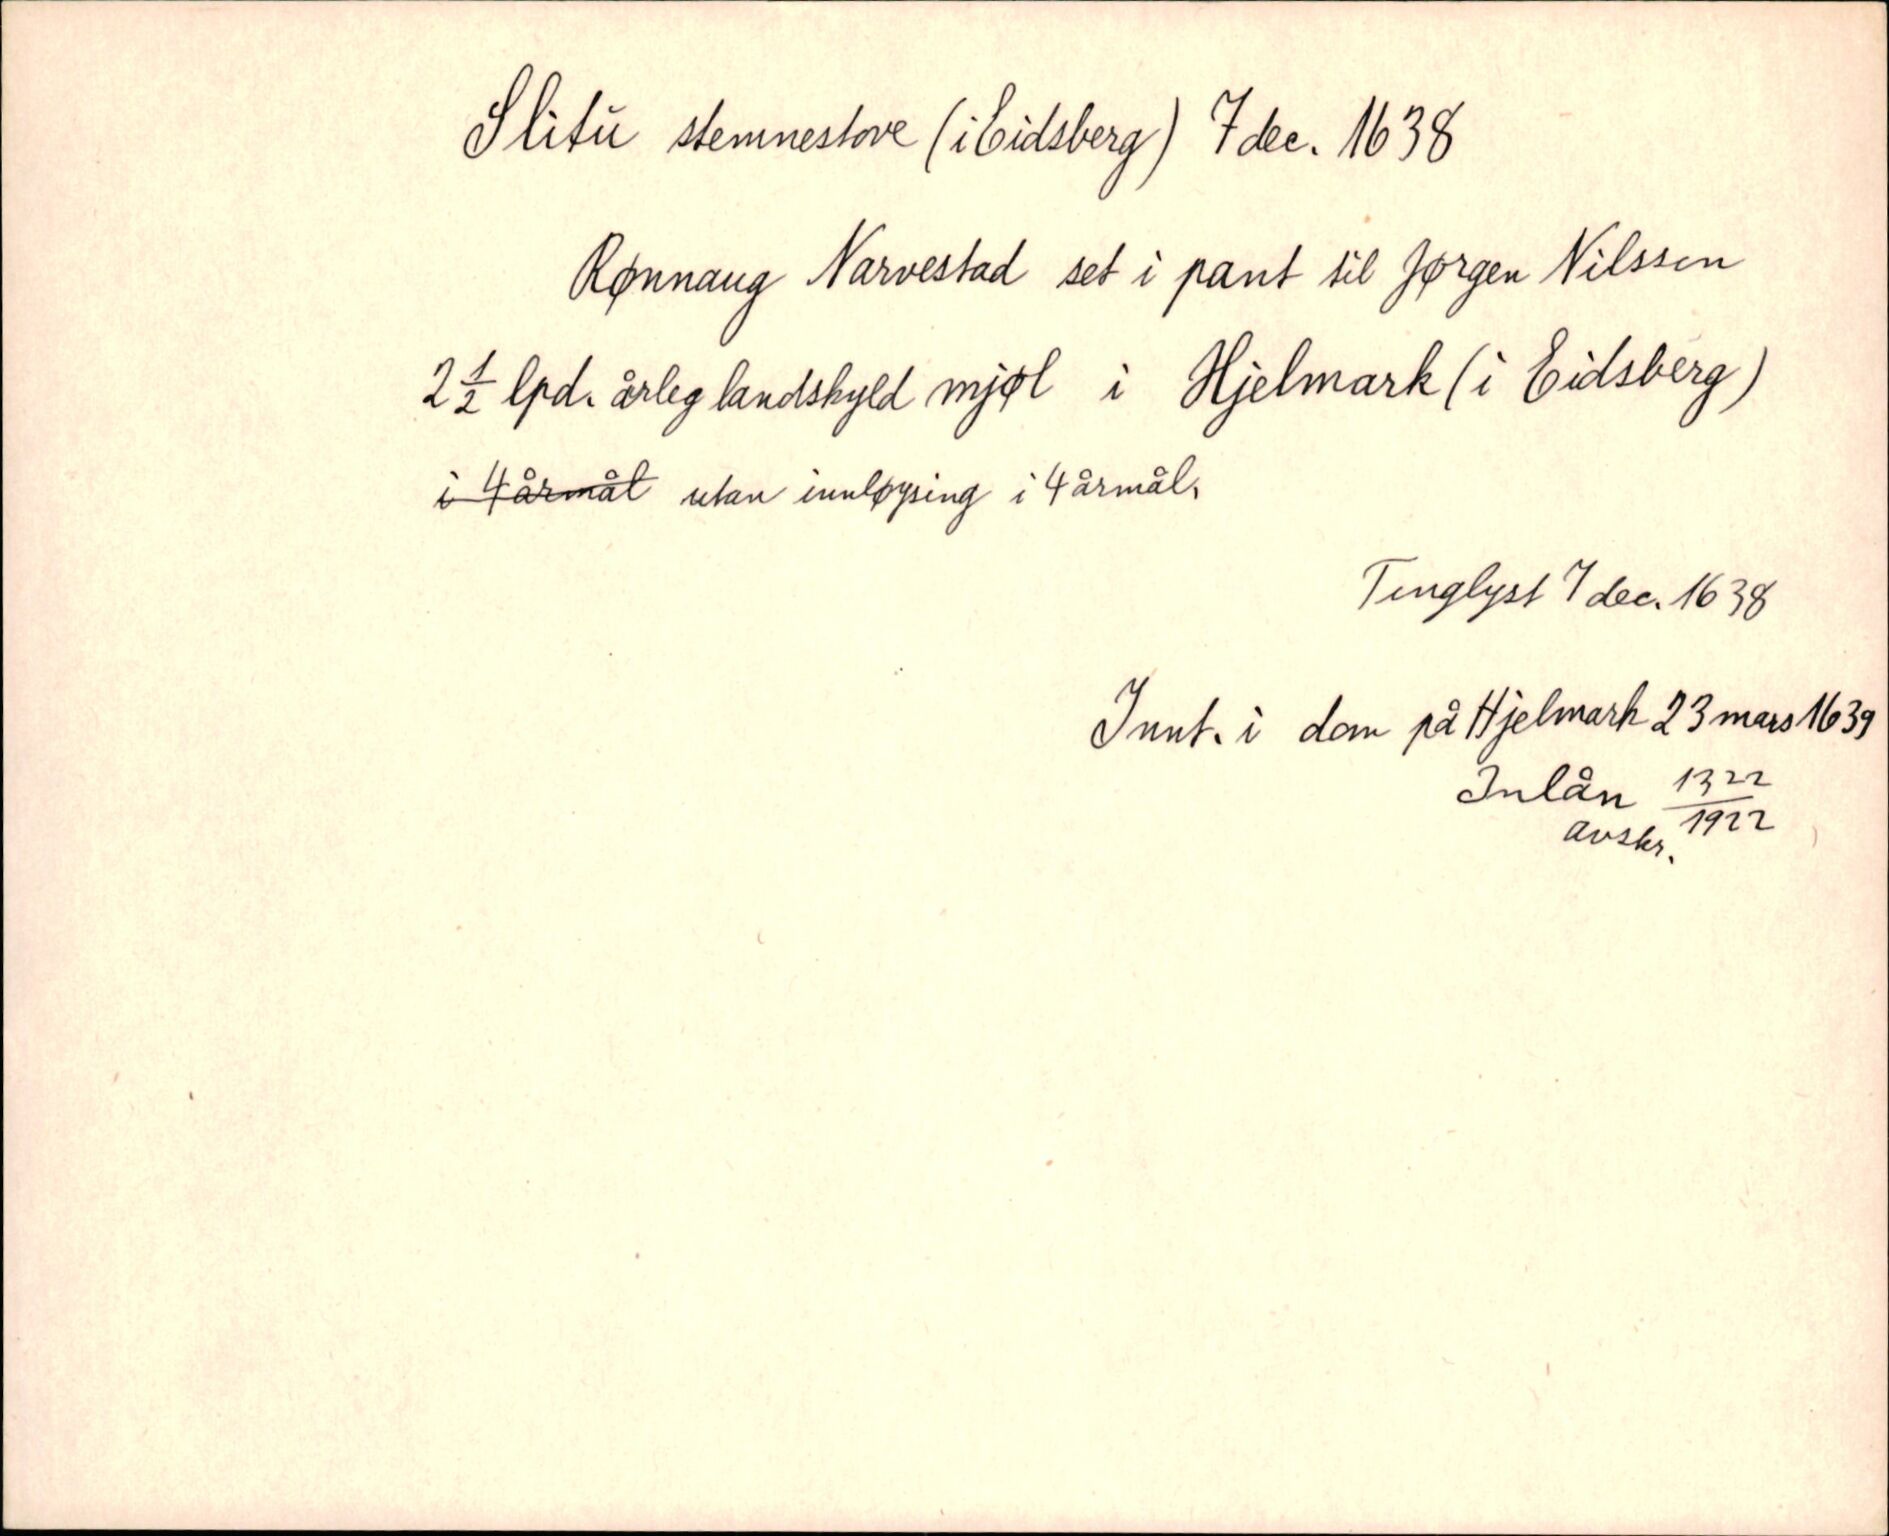 Slitu stemnestove (i Eidsberg) 7 dec. 1638
Rønnaug Narvestad set i pant til Jørgen Nilssen
2 1/2 lpd. årleg landskyld mjøl i Hjelmark (i Eidsberg)
i 4 årmål utan innløysing i 4 årmål.
Tinglyst 7 dec. 1638
Innt. i dom på Hjelmark 23 mars 1639
Inlån 1322/1922
avskr.